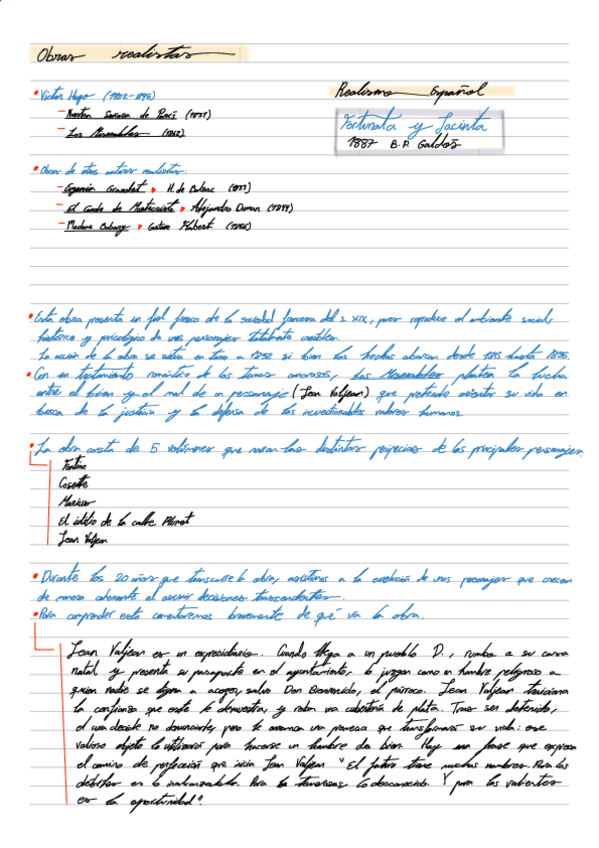 Obras realistas
• Victor Hugo (1802-1895)
– Nuestra Señora de París (1831)
– Los Miserables (1862)
Realismo Español
Fortunata y Jacinta
1887 B.P. Galdós
• Obras de otros autores realistas:
– Eugenia Grandet • H. de Balzac (1833)
– El Conde de Montecristo • Alejandro Dumas (1844)
– Madame Bobary • Gustave Flubert (1856)
• Esta obra presenta un fiel fresco de la sociedad francesa del s. XIX, pues reproduce el ambiente social,
histórico y psicológico de unos personajes totalmente creíbles.
La acción de la obra se sitúa en torno a 1832 si bien los hechos abarcan desde 1815 hasta 1835.
• Con un tratamiento romántico de los temas amorosos, Los Miserables plantea la lucha
entre el bien y el mal de un personaje (Jean Valjean) que pretende orientar su vida en
busca de la justicia y la defensa de los incuestionables valores humanos.
• La obra consta de 5 volúmenes que narran las distintas peripecias de los principales personajes.
Fantine
Cosette
Marius
El idilio de la calle Plumet
Jean Valjean
• Durante los 20 años que transcurre la obra, asistimos a la evolución de unos personajes que crecen
de manera coherente al asumir decisiones trascendentes.
• Para comprender esto comentaremos brevemente de qué va la obra.
Jean Valjean es un expresidiario. Cuando llega a un pueblo D., rumbo a su casa
natal y presenta su pasaporte en el ayuntamiento, lo juzgan como un hombre peligroso a
quien nadie se digna a acoger, salvo Don Bienvenido, el párroco. Jean Valjean traiciona
la confianza que este le demuestra, y roba una cubertería de plata. Tras ser detenido,
el cura decide no denunciarle, pero le arranca una promesa que transformará su vida: ese
valioso objeto lo utilizará para hacerse un hombre de bien. Hay una frase que expresa
el camino de perfección que inicia Jean Valjean "El futuro tiene muchos nombres. Para los
débiles es lo inalcanzable. Para los temerosos, lo desconocido. Y para los valientes
es la oportunidad".